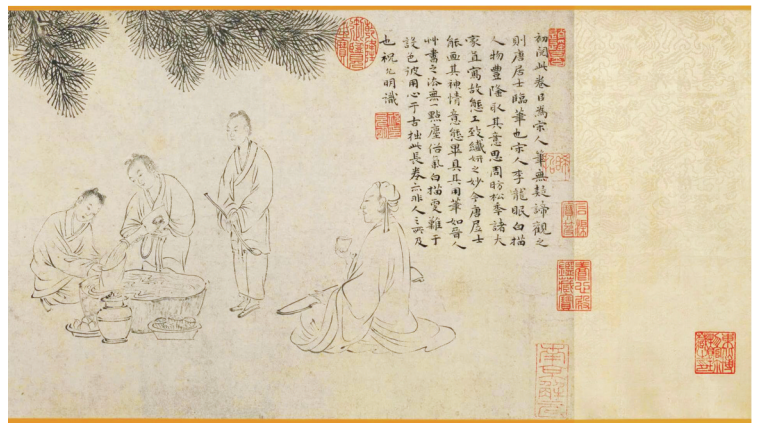 初閱此卷目為宋人筆無疑諦觀之
則唐居士臨筆也宋人李龍眠白描
人物豐隆取其意思周昉松年諸大
家並寫故態工致纖妍之妙今唐居士
能画其神情意態畢具其用筆如晉人
艸書之法無一點塵俗氣白描更難于
設色彼用心于古拙此長卷亦非人之所及
也祝允明識
石渠寶笈
養心殿鑑藏寶
南京解元